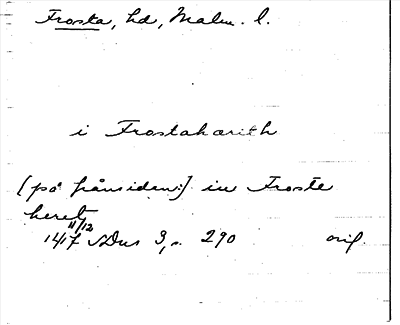 Froska, hd, Malm. l.
i Frostahærith
[på frånsidan:] in Froste
heret
11/12
1417 SDns 3, s. 290 orig.